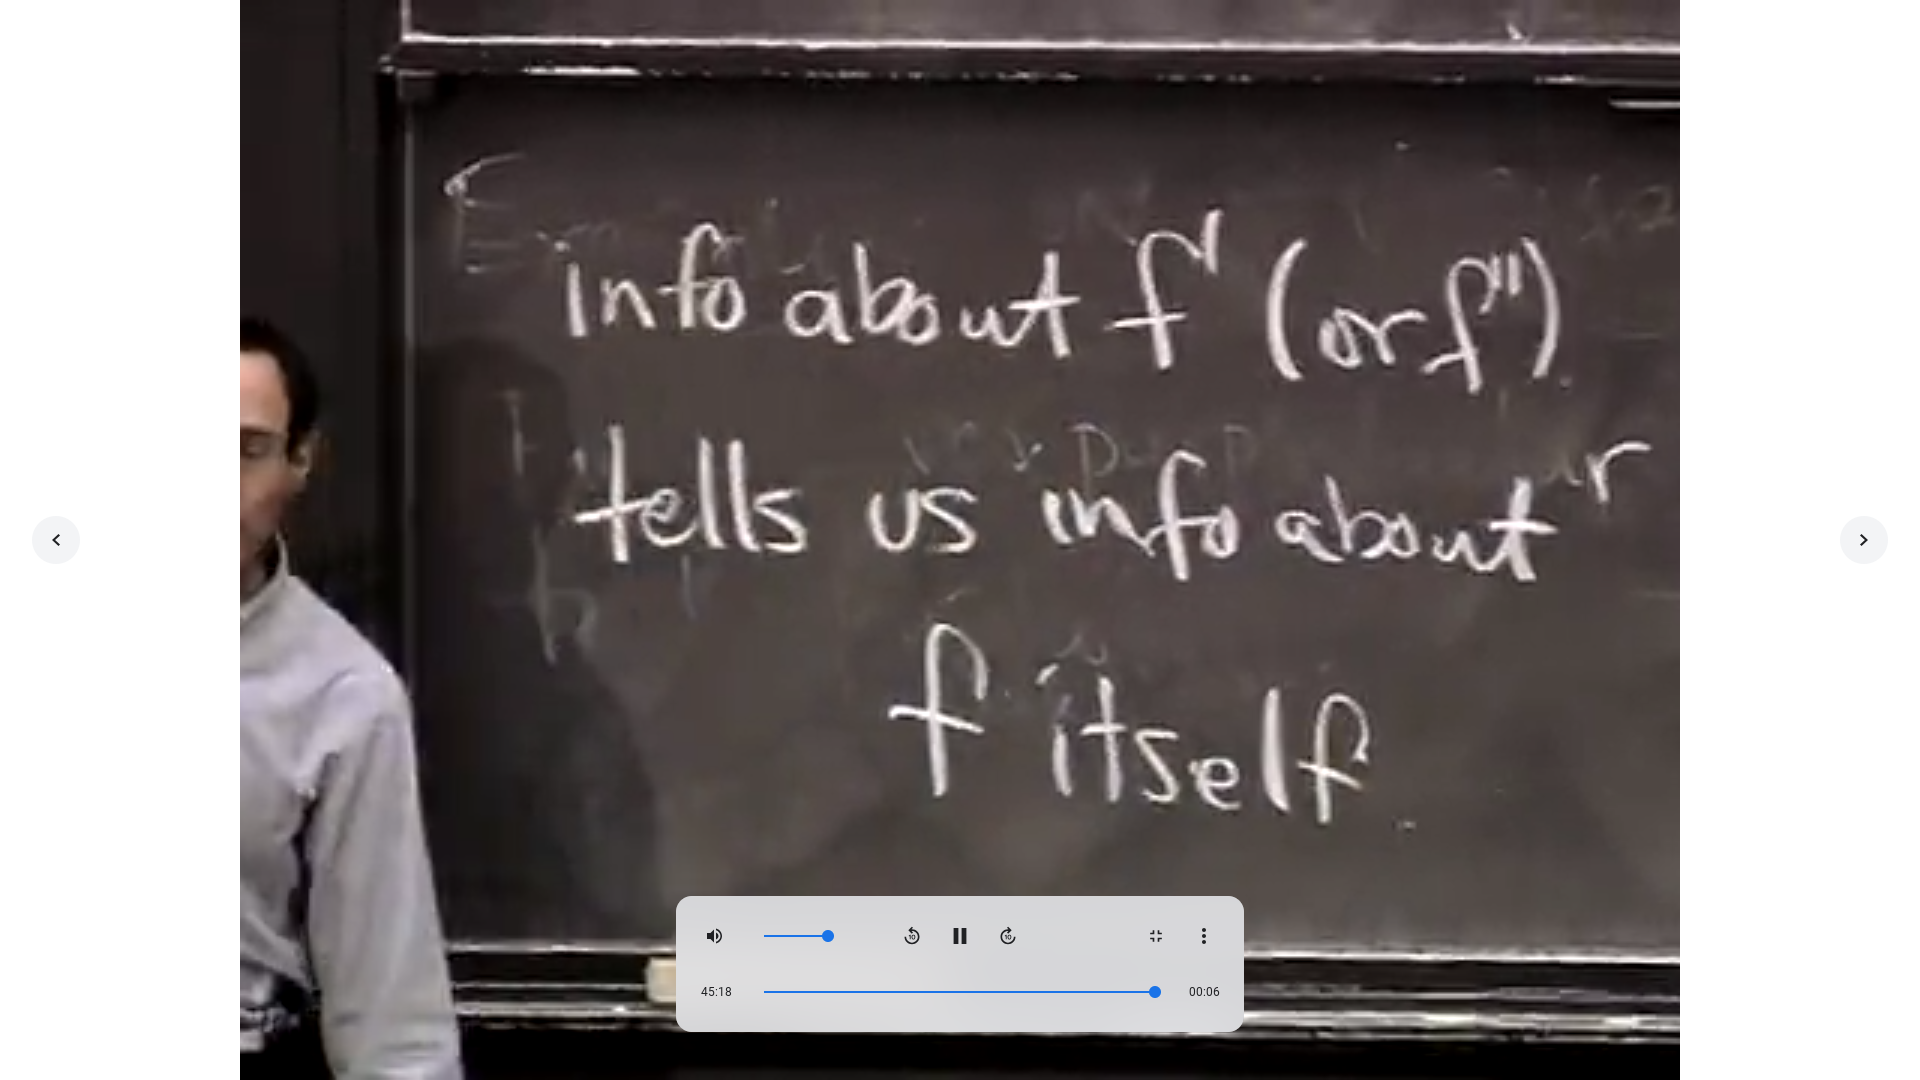 info about f' (or f")
tells us info about
f itself.
45:18
00:06